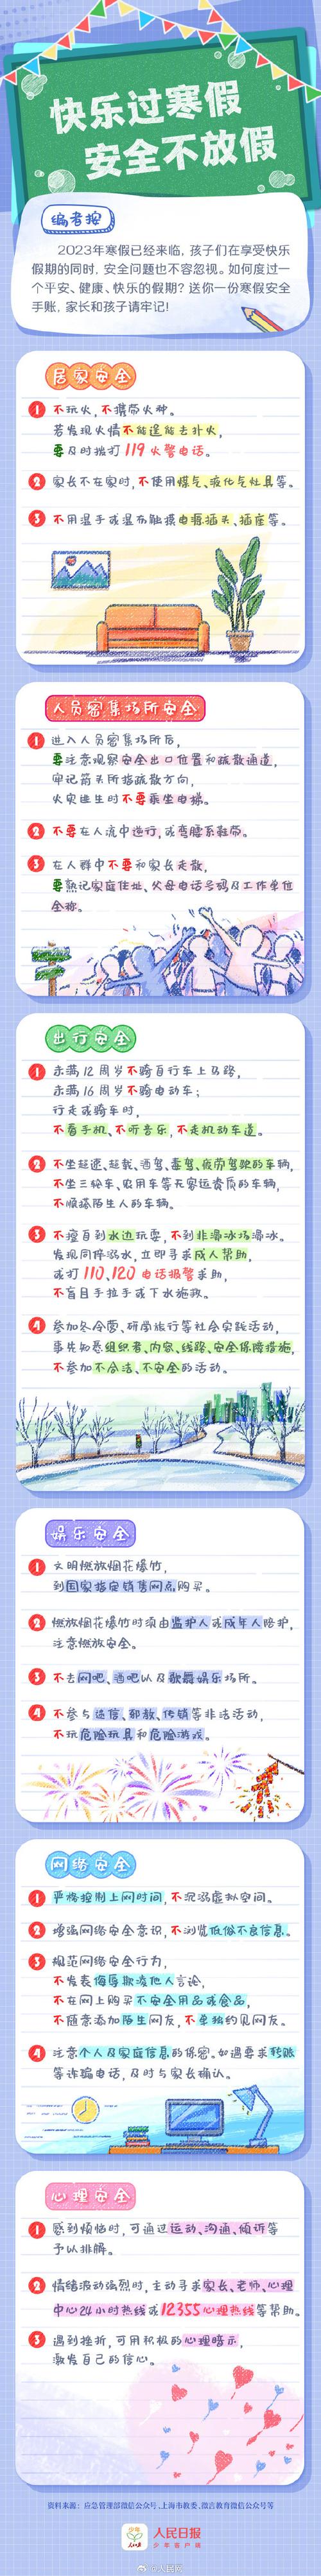 快乐过寒假
安全不放假
编者按
2023年寒假已经来临,孩子们在享受快乐
假期的同时,安全问题也不容忽视。如何度过一
个平安、健康、快乐的假期?送你一份寒假安全
手账,家长和孩子请牢记!
居家安全
1 不玩火,不携带火种。
若发现火情不能逞能去扑火,
要及时拨打119火警电话。
2 家长不在家时,不使用煤气、液化气灶具等。
3 不用湿手或湿布触摸电源插头、插座等。
人员密集场所安全
1 进入人员密集场所后,
要注意观察安全出口位置和疏散通道,
牢记箭头所指疏散方向,
火灾逃生时不要乘坐电梯。
2 不要在人流中逆行,或弯腰系鞋带。
3 在人群中不要和家长走散,
要熟记家庭住址、父母电话号码及工作单位
全称。
出行安全
1 未满12周岁不骑自行车上马路,
未满16周岁不骑电动车;
行走或骑车时,
不看手机、不听音乐,不走机动车道。
2 不坐超速、超载、酒驾、毒驾、疲劳驾驶的车辆,
不坐三轮车、农用车等无客运资质的车辆,
不顺搭陌生人的车辆。
3 不擅自到水边玩耍,不到非溜冰场溜冰。
发现同伴溺水,立即寻求成人帮助,
或打110、120电话报警求助,
不盲目手拉手或下水施救。
4 参加冬令营、研学旅行等社会实践活动,
事先知悉组织者、内容、线路、安全保障措施,
不参加不合法、不安全的活动。
娱乐安全
1 文明燃放烟花爆竹,
到国家指定销售网点购买。
2 燃放烟花爆竹时须由监护人或成年人陪护,
注意燃放安全。
3 不去网吧、酒吧以及歌舞娱乐场所。
4 不参与迷信、邪教、传销等非法活动,
不玩危险玩具和危险游戏。
网络安全
1 严格控制上网时间,不沉溺虚拟空间。
2 增强网络安全意识,不浏览低俗不良信息。
3 规范网络安全行为,
不发表侮辱欺凌他人言论,
不在网上购买不安全用品或食品,
不随意添加陌生网友,不单独约见网友。
4 注意个人及家庭信息的保密。如遇要求转账
等诈骗电话,及时与家长确认。
心理安全
1 感到烦恼时,可通过运动、沟通、倾诉等
予以排解。
2 情绪波动强烈时,主动寻求家长、老师、心理
中心24小时热线或12355心理热线等帮助。
3 遇到挫折,可用积极的心理暗示,
激发自己的信心。
资料来源:应急管理部微信公众号、上海市教委、微言教育微信公众号等
少年
人民日报
少年客户端
@人民网